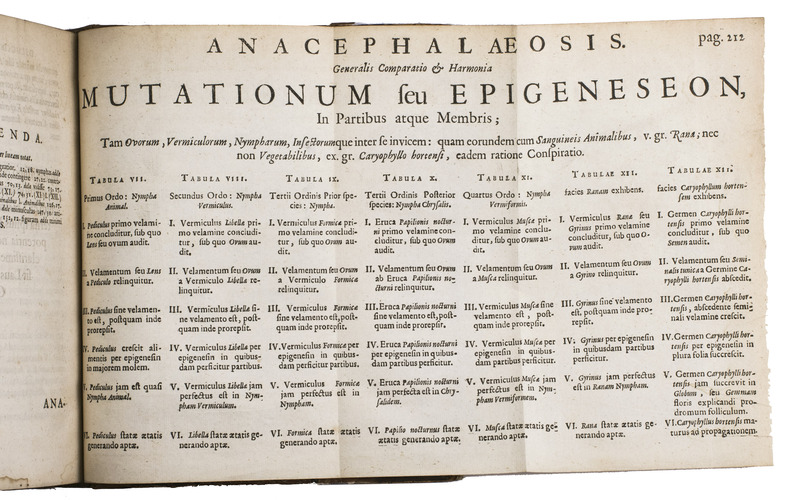 ANACEPHALÆOSIS.
pag. 212
Generalis Comparatio & Harmonia
MUTATIONUM seu EPIGENESEON,
In Partibus atque Membris;
Tam Ovorum, Vermiculorum, Nympharum, Insectorumque inter se invicem: quam eorundem cum Sanguineis Animalibus, v. gr. Rana; nec
non Vegetabilibus, ex. gr. Caryophyllo hortensi, eadem ratione Conspiratio.
TABULA VII.
Primus Ordo: Nympha
Animal.
I. Pediculus primo velami-
ne concluditur, sub quo
Lens seu ovum audit.
II. Velamentum seu Lens
a Pediculo relinquitur.
III. Pediculus sine velamen-
to est, postquam inde
prorepsit.
IV. Pediculus crescit ali-
mentis per epigenesin
in majorem molem.
V. Pediculus jam est quasi
Nympha Animal.
VI. Pediculus statæ ætatis
generando aptæ.
TABULA VIII.
Secundus Ordo: Nympha
Vermiculus.
I. Vermiculus Libellæ pri-
mo velamine concludi-
tur, sub quo Ovum au-
dit.
II. Velamentum seu Ovum
a Vermiculo Libellæ re-
linquitur.
III. Vermiculus Libellæ si-
ne velamento est, post-
quam inde prorepsit.
IV. Vermiculus Libellæ per
epigenesin in quibus-
dam perficitur partibus.
V. Vermiculus Libellæ jam
perfectus est in Nym-
pham Vermiculum.
VI. Libella statæ ætatis ge-
nerando aptæ.
TABULA IX.
Tertii Ordinis Prior spe-
cies: Nympha.
I. Vermiculus Formicæ pri-
mo velamine concludi-
tur, sub quo Ovum au-
dit.
II. Velamentum seu Ovum
a Vermiculo Formicæ
relinquitur.
III. Vermiculus Formicæ
sine velamento est, post-
quam inde prorepsit.
IV. Vermiculus Formicæ per
epigenesin in quibus-
dam partibus perficitur.
V. Vermiculus Formicæ
jam perfectus est in
Nympham.
VI. Formica statæ ætatis
generando aptæ.
TABULA X.
Tertii Ordinis Posterior
species: Nympha Chrysalis.
I. Eruca Papilionis noctur-
ni primo velamine con-
cluditur, sub quo Ovum
audit.
II. Velamentum seu Ovum
ab Eruca Papilionis no-
cturni relinquitur.
III. Eruca Papilionis nocturni
sine velamento est, post-
quam inde prorepsit.
IV. Eruca Papilionis nocturni
per epigenesin in quibus-
dam partibus perficitur.
V. Eruca Papilionis nocturni
jam perfecta est in Chry-
salidem.
VI. Papilio nocturnus statæ
ætatis generando aptæ.
TABULA XI.
Quartus Ordo: Nympha
Vermiformis.
I. Vermiculus Muscæ pri-
mo velamine conclu-
ditur, sub quo Ovum
audit.
II. Velamentum seu Ovum
a Musca relinquitur.
III. Vermiculus Muscæ sine
velamento est, postquam
inde prorepsit.
IV. Vermiculus Muscæ per
epigenesin in quibus-
dam partibus perficitur.
V. Vermiculus Muscæ jam
perfectus est in Nym-
pham Vermiformem.
VI. Musca statæ ætatis ge-
nerando aptæ.
TABULAE XII.
facies Ranam exhibens.
I. Vermiculus Ranæ seu
Gyrinus primo velamine
concluditur, sub quo O-
vum audit.
II. Velamentum seu Ovum
a Gyrino relinquitur.
III. Gyrinus sine velamento
est, postquam inde pro-
repsit.
IV. Gyrinus per epigenesin
in quibusdam partibus
perficitur.
V. Gyrinus jam perfectus
est in Ranam Nympham.
VI. Rana statæ ætatis ge-
nerando aptæ.
TABULAE XII.
facies Caryophyllum horten-
sem exhibens.
I. Germen Caryophylli hor-
tensis primo velamine
concluditur, sub quo
Semen audit.
II. Velamentum seu Semi-
nalis tunica a Germine Ca-
ryophylli hortensis abscedit.
III. Germen Caryophylli hor-
tensis, abscedente semi-
nali velamine crescit.
IV. Germen Caryophylli hor-
tensis per epigenesin in
plura folia succrescit.
V. Germen Caryophylli hor-
tensis jam succrevit in
Globum, seu Gemmam
floris explicandi pro-
dromum folliculum.
VI. Caryophyllus hortensis ma-
turus ad propagationem.
ENDA.
ANA-